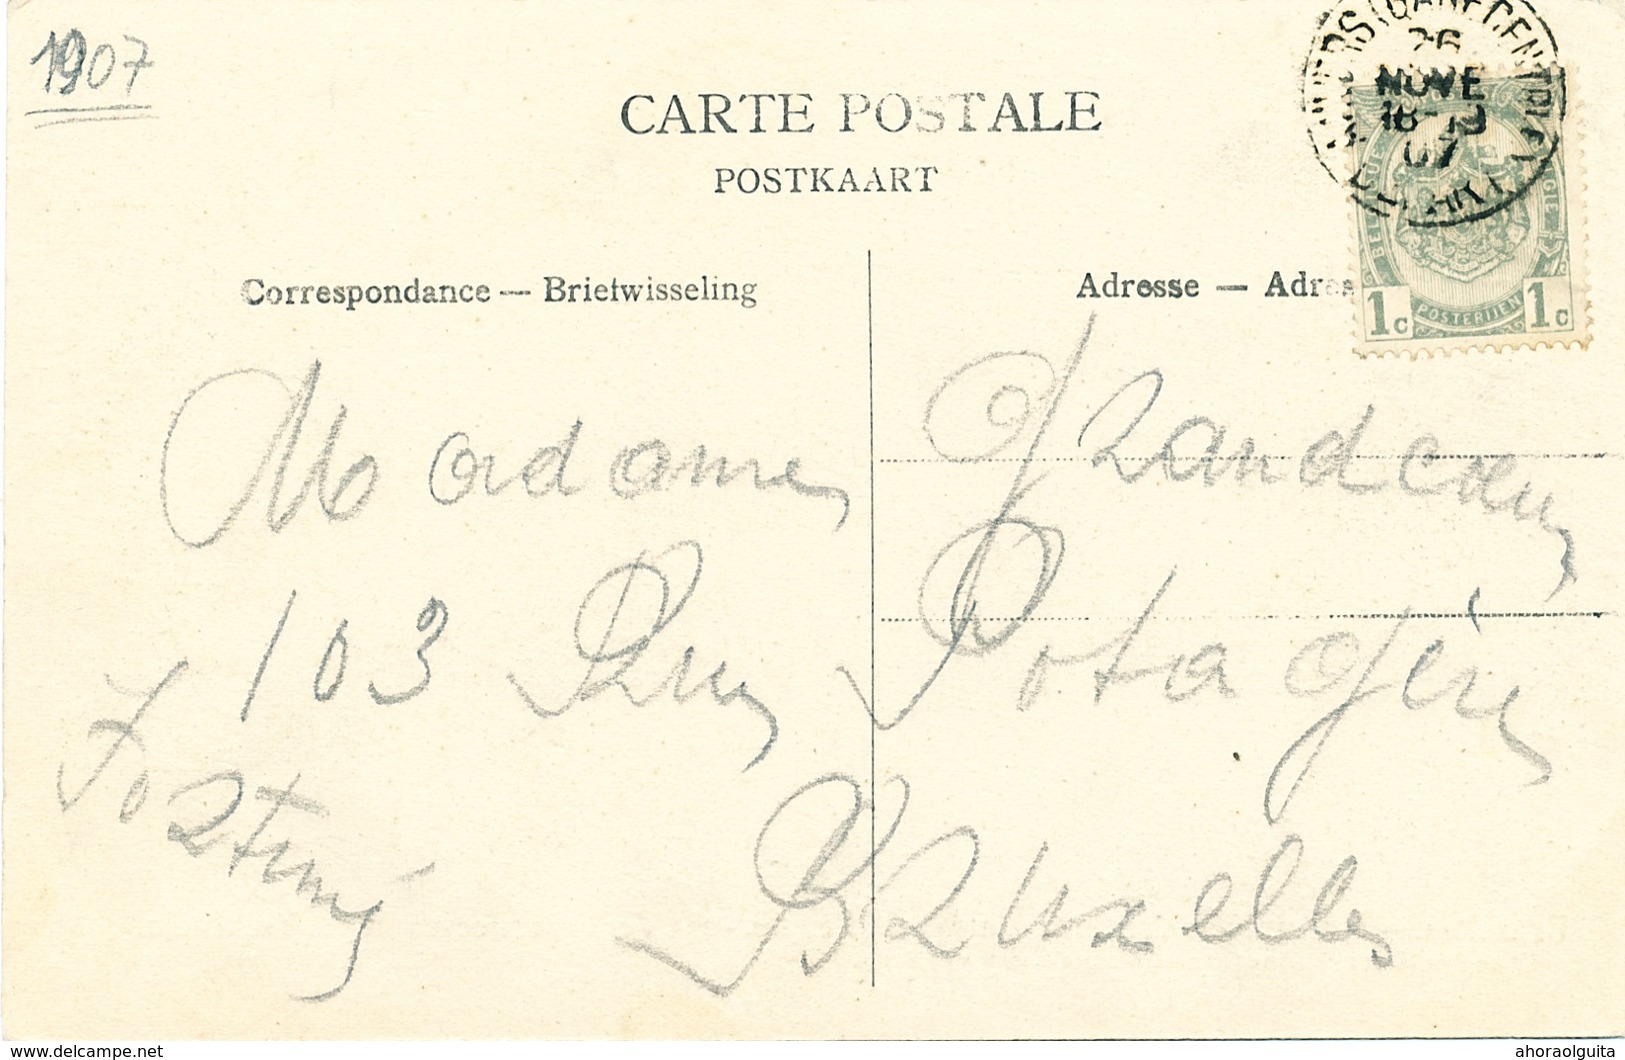 1907
CARTE POSTALE
POSTKAART
26
NOVE
18-19
07
BELGIQUE
BELGIE
1c POSTERIJEN 1c
Correspondance — Briefwisseling
Adresse — Adres
Madame
103 Rue Potagère
Bruxelles
www.delcampe.net
ahoraolguita